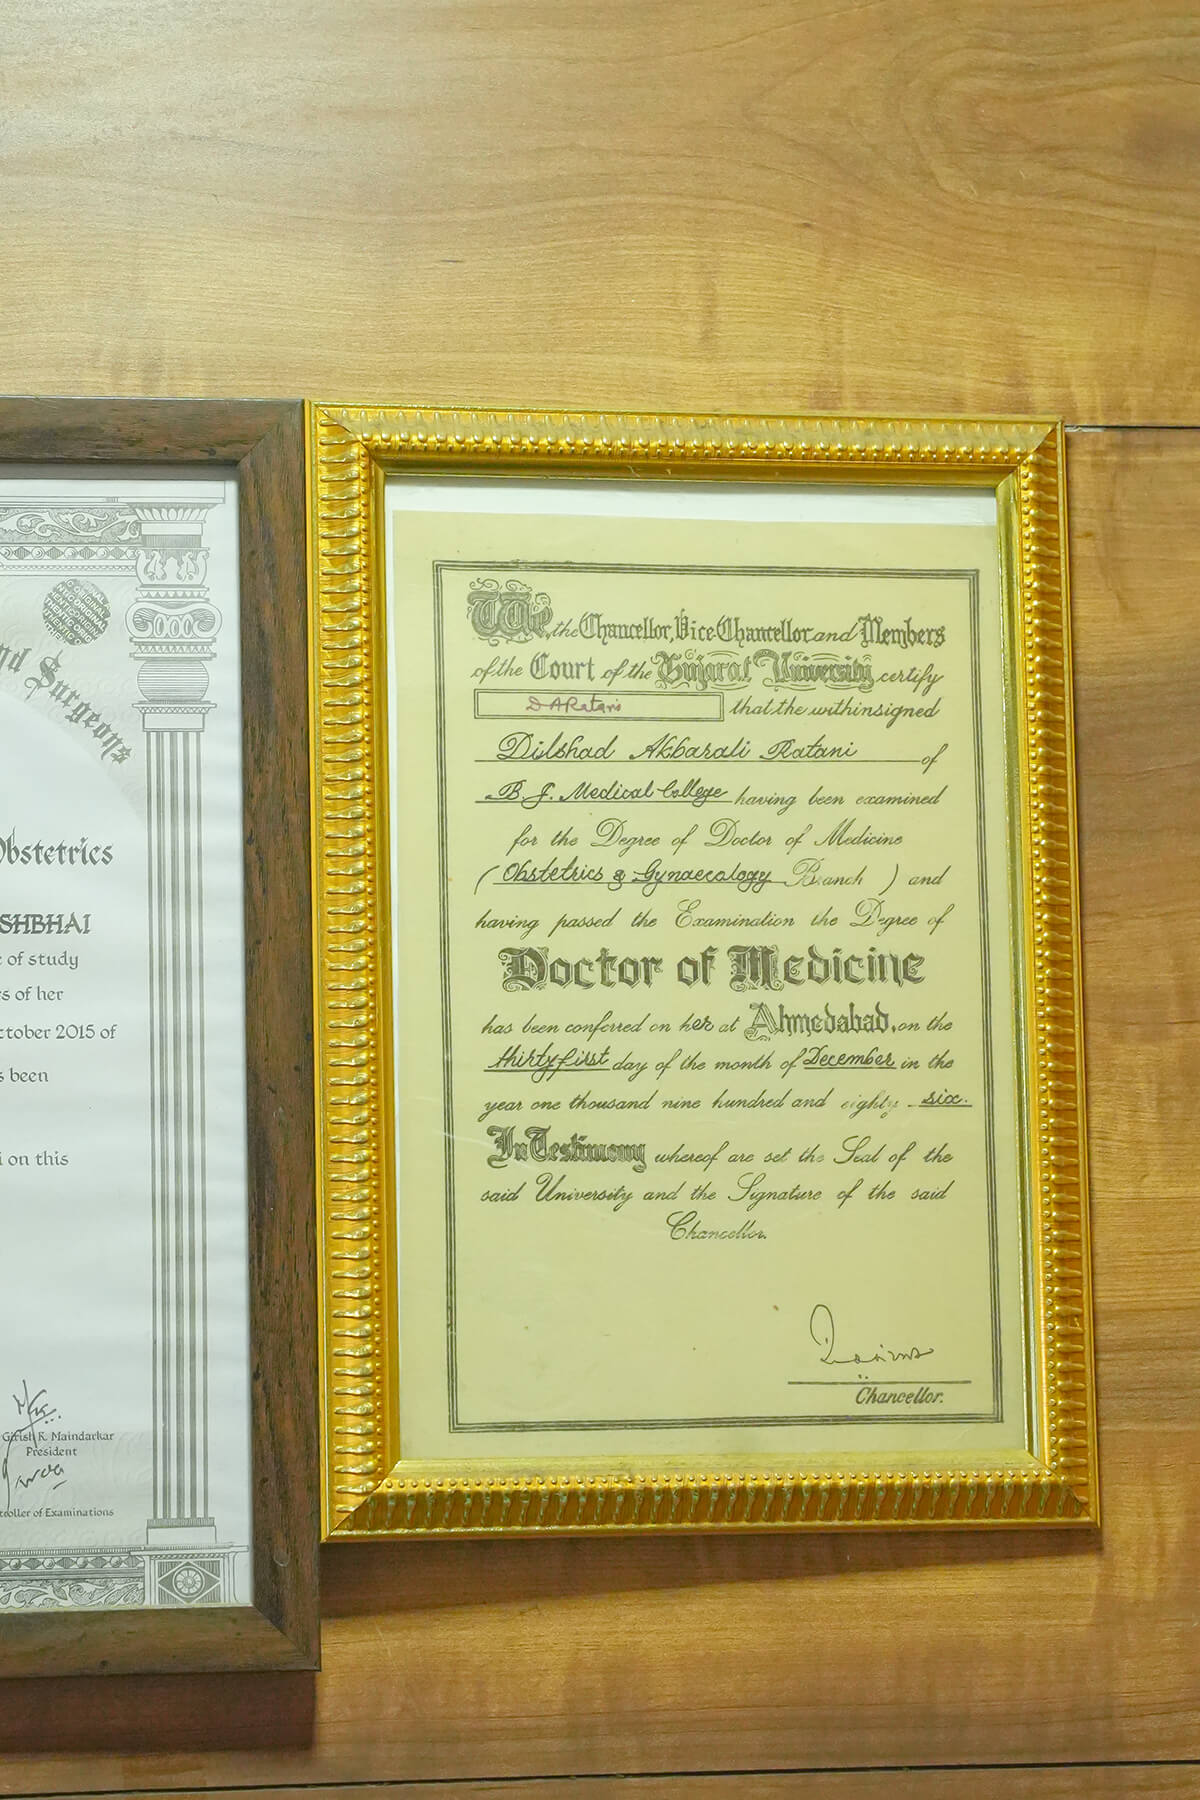 nd Surgeons
Obstetrics
SHBHAI
of study
s of her
ctober 2015 of
s been
on this
Girish R. Maindarkar
President
troller of Examinations
We, the Chancellor, Vice Chancellor and Members
of the Court of the Gujarat University certify
D A Ratani that the withinsigned
Dilshad Akbarali Ratani of
B. J. Medical College having been examined
for the Degree of Doctor of Medicine
( Obstetrics & Gynaecology Branch ) and
having passed the Examination the Degree of
Doctor of Medicine
has been conferred on her at Ahmedabad, on the
thirtyfirst day of the month of December in the
year one thousand nine hundred and eighty - six.
In Testimony whereof are set the Seal of the
said University and the Signature of the said
Chancellor.
Chancellor.